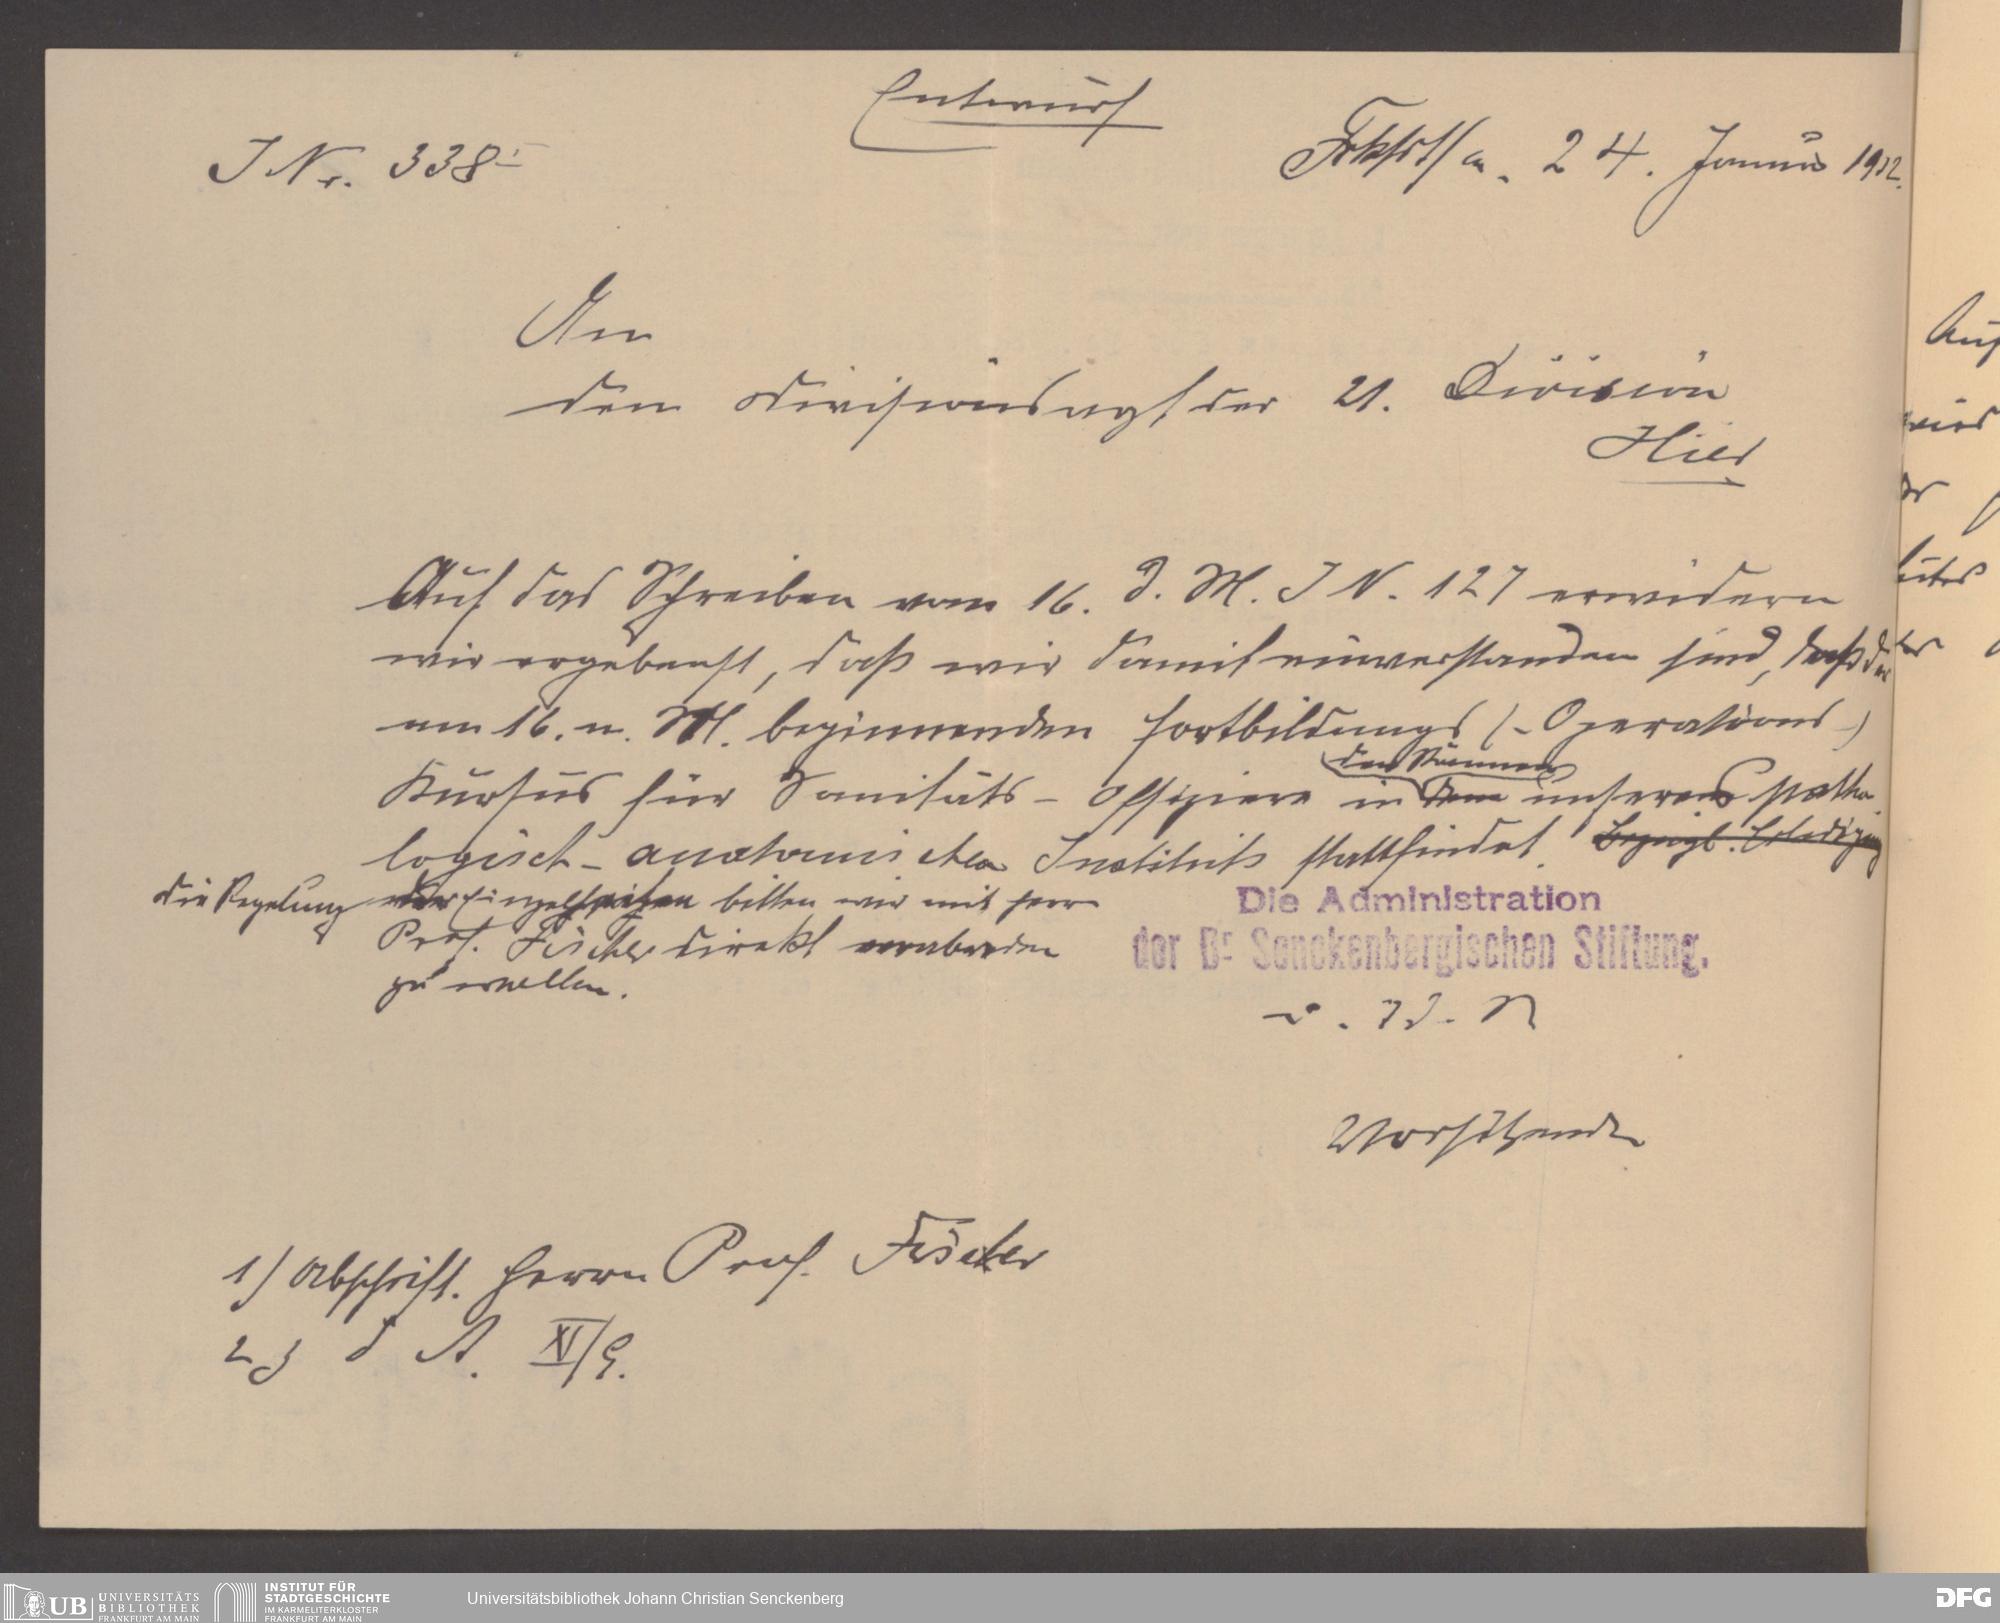 Entwurf
J Nr. 338
Frkfrt/m. 24. Januar 1912.
An
den Divisionsarzt der 21. Division
Hier
Auf das Schreiben vom 16. d. M. J N. 127 erwidern
wir ergebenst, daß wir damit einverstanden sind, daß der
am 16. n. M. beginnenden Fortbildungs (-Operations-)
den Räumen
Kursus für Sanitäts-Offiziere in dem unseres patho-
logisch-anatomischen Instituts stattfindet. Bezügl. Erledigung
Die Regelung der Einzelheiten bitten wir mit Herrn
Prof. Fischer direkt verabreden
zu wollen.
Die Administration
der Dr. Senckenbergischen Stiftung.
Vorsitzender
1) Abschrift. Herrn Prof. Fischer
2) z d A. XI/9.
Auf
wird
UB UNIVERSITÄTS
BIBLIOTHEK
FRANKFURT AM MAIN
INSTITUT FÜR
STADTGESCHICHTE
IM KARMELITERKLOSTER
FRANKFURT AM MAIN
Universitätsbibliothek Johann Christian Senckenberg
DFG